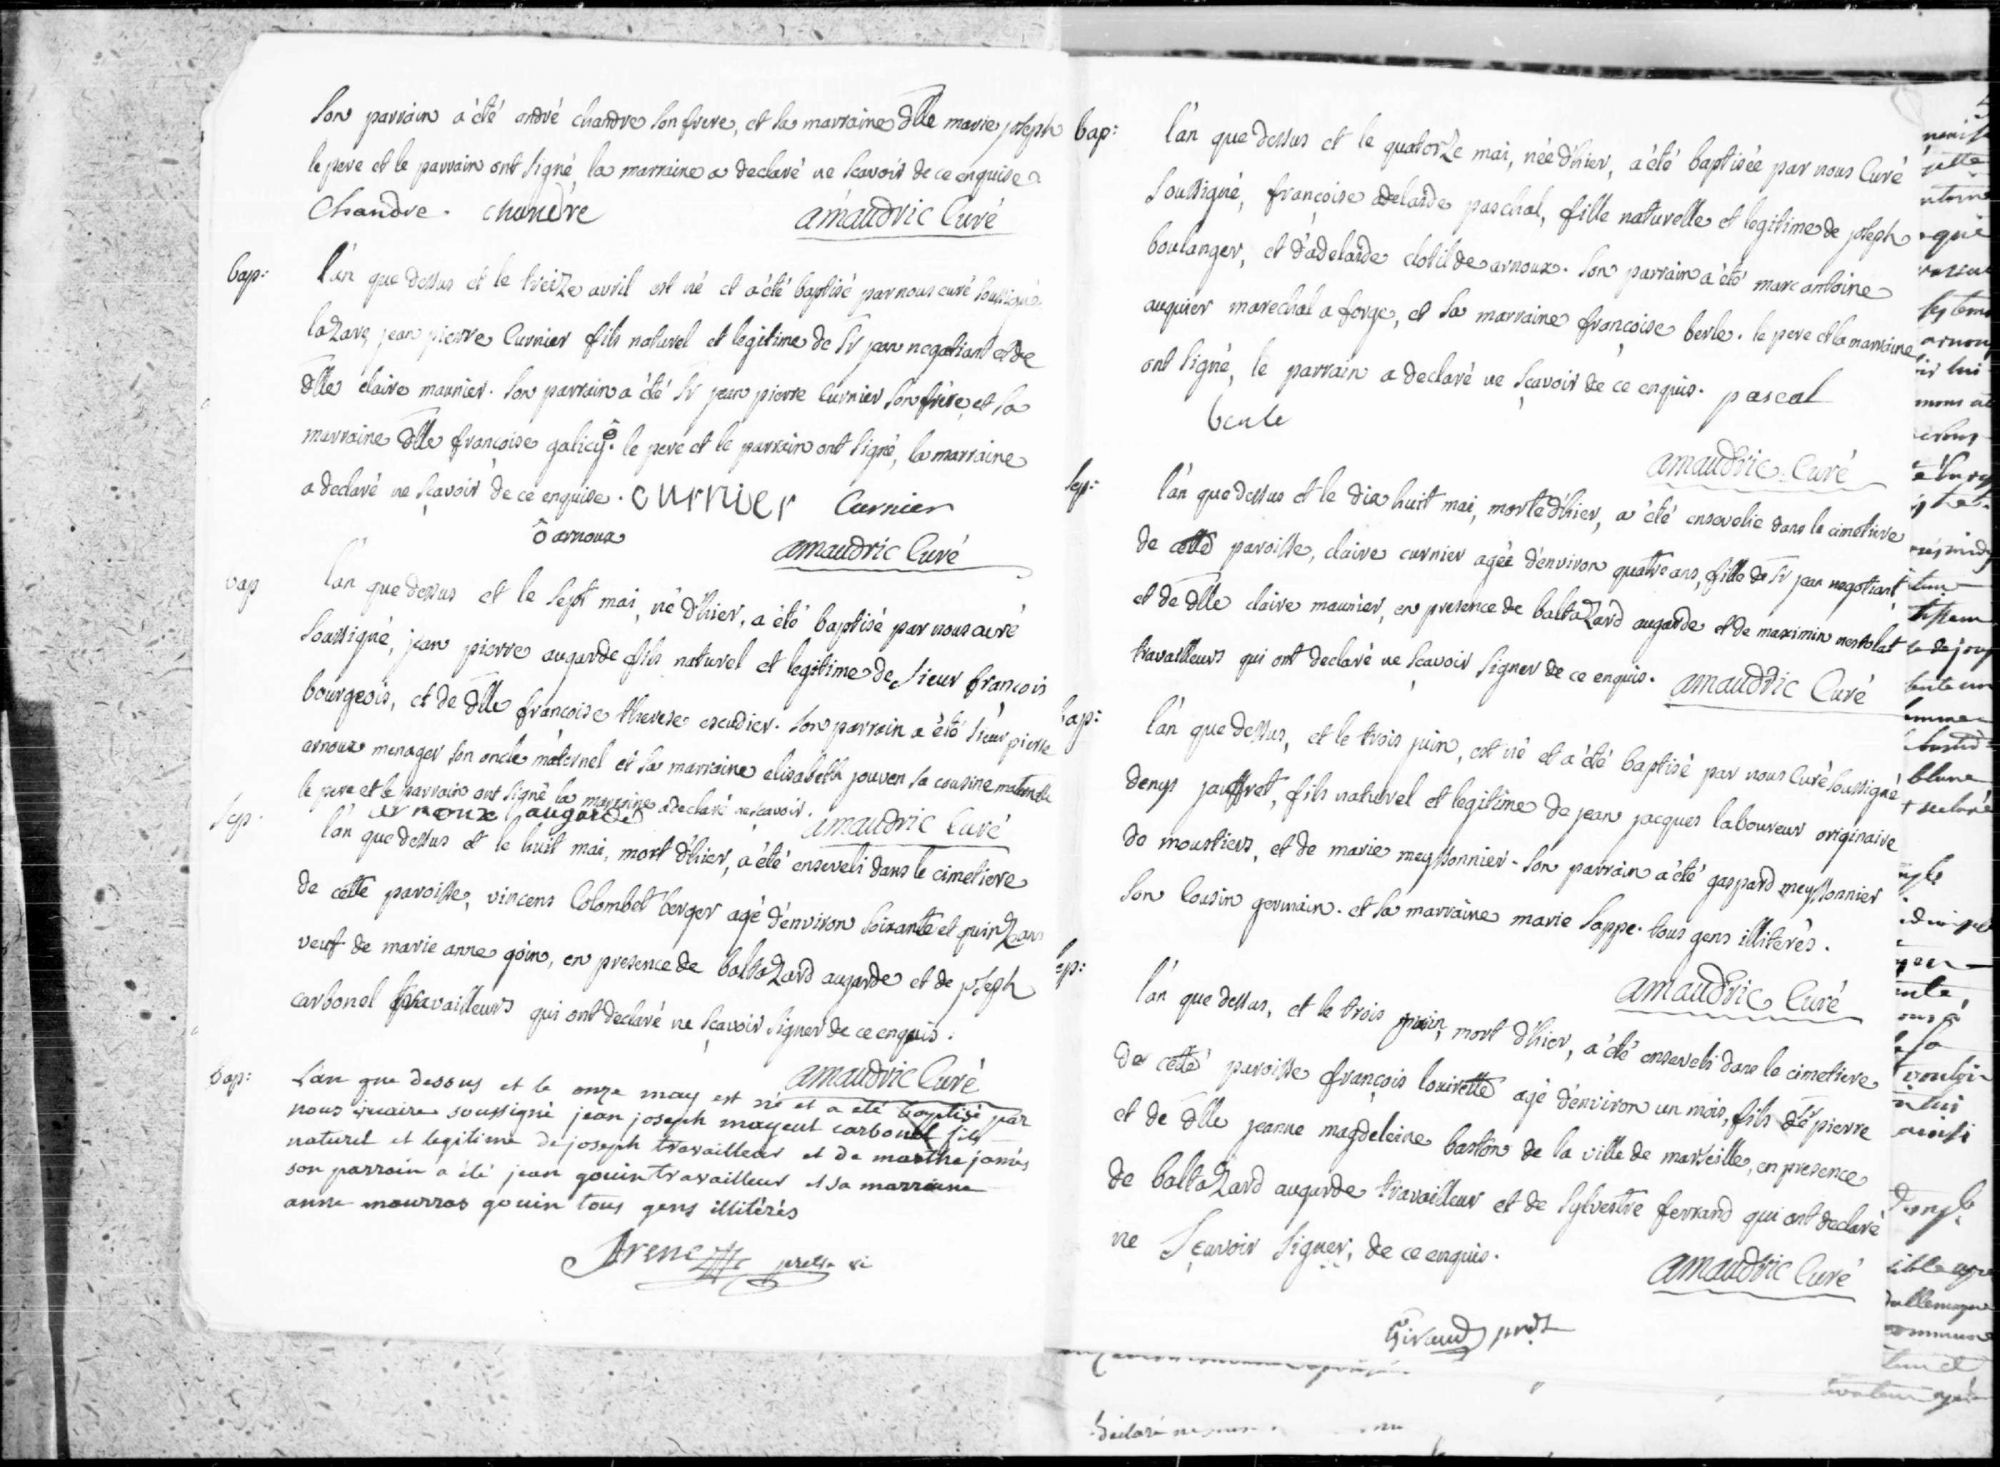 son parrain a été andré chandre son frere, et sa marraine dlle marie joseph
le pere et le parrain ont signé la marraine a declaré ne scavoir de ce enquise
Chandre. chandre amaudric Curé
bap: l'an que dessus et le treize avril est né et a été baptisé par nous curé soussigné
lazare jean pierre Curnier fils naturel et legitime de Sr jean negotiant et de
dlle claire maunier. son parrain a été Sr jean pierre Curnier son frère, et sa
marraine dlle françoise galicy ô. le pere et le parrain ont signé, la marraine
a declaré ne sçavoir de ce enquise. curnier Curnier
ô arnoux amaudric Curé
bap l'an que dessus et le sept mai, né d'hier, a été baptisé par nous curé
soussigné, jean pierre augarde fils naturel et legitime de sieur françois
bourgeois, et de dlle françoise therese escudier. son parrain a été sieur pierre
arnoux menager son oncle maternel et sa marraine elisabeth jouven sa cousine maternelle
le pere et le parrain ont signé la marraine a declaré ne scavoir.
arnoux augarde amaudric Curé
Sep. l'an que dessus et le huit mai, mort d'hier, a été enseveli dans le cimetiere
de cette paroisse, vincens Colombet berger agé d'environ soixante et quinze ans
veuf de marie anne goin, en presence de baltazard augarde et de joseph
carbonel travailleurs qui ont declaré ne sçavoir signer de ce enquis.
amaudric Curé
bap: L'an que dessus et le onze may est né et a été baptisé par
nous vicaire soussigné jean joseph mayeul carbonel fils
naturel et legitime de joseph travailleur et de marthe
son parrain a été jean gouin travailleur et sa marraine
anne mourras gouin tous gens illitérés
Arene
bap: l'an que dessus et le quatorze mai, née d'hier, a été baptisée par nous Curé
soussigné, françoise adelaide paschal, fille naturelle et legitime de joseph
boulanger, et d'adelaide clotilde arnoux. son parrain a été marc antoine
auquier marechal a forge, et sa marraine françoise berle. le pere et la marraine
ont signé, le parrain a declaré ne sçavoir de ce enquis. pascal
berle
amaudric Curé
sep: l'an que dessus et le dix huit mai, morte d'hier, a été ensevelie dans le cimetiere
de cette paroisse, claire curnier agée d'environ quatre ans, fille de Sr jean negotiant,
et de dlle claire maunier, en presence de baltazard augarde et de maximin
travailleurs qui ont declaré ne sçavoir signer de ce enquis. amaudric Curé
bap: l'an que dessus, et le trois juin, est né et a été baptisé par nous Curé soussigné
denys jauffret, fils naturel et legitime de jean jacques laboureur originaire
de moustiers, et de marie meyssonnier. son parrain a été gaspard meyssonnier
son cousin germain. et sa marraine marie sappe. tous gens illiterés.
amaudric Curé
ep: l'an que dessus, et le trois juin, mort d'hier, a été enseveli dans le cimetiere
de cette paroisse françois agé d'environ un mois, fils de Sr pierre
et de dlle jeanne magdeleine baston de la ville de marseille, en presence
de baltazard augarde travailleur et de sylvestre ferrand qui ont declaré
ne sçavoir signer, de ce enquis.
amaudric Curé
Giraud